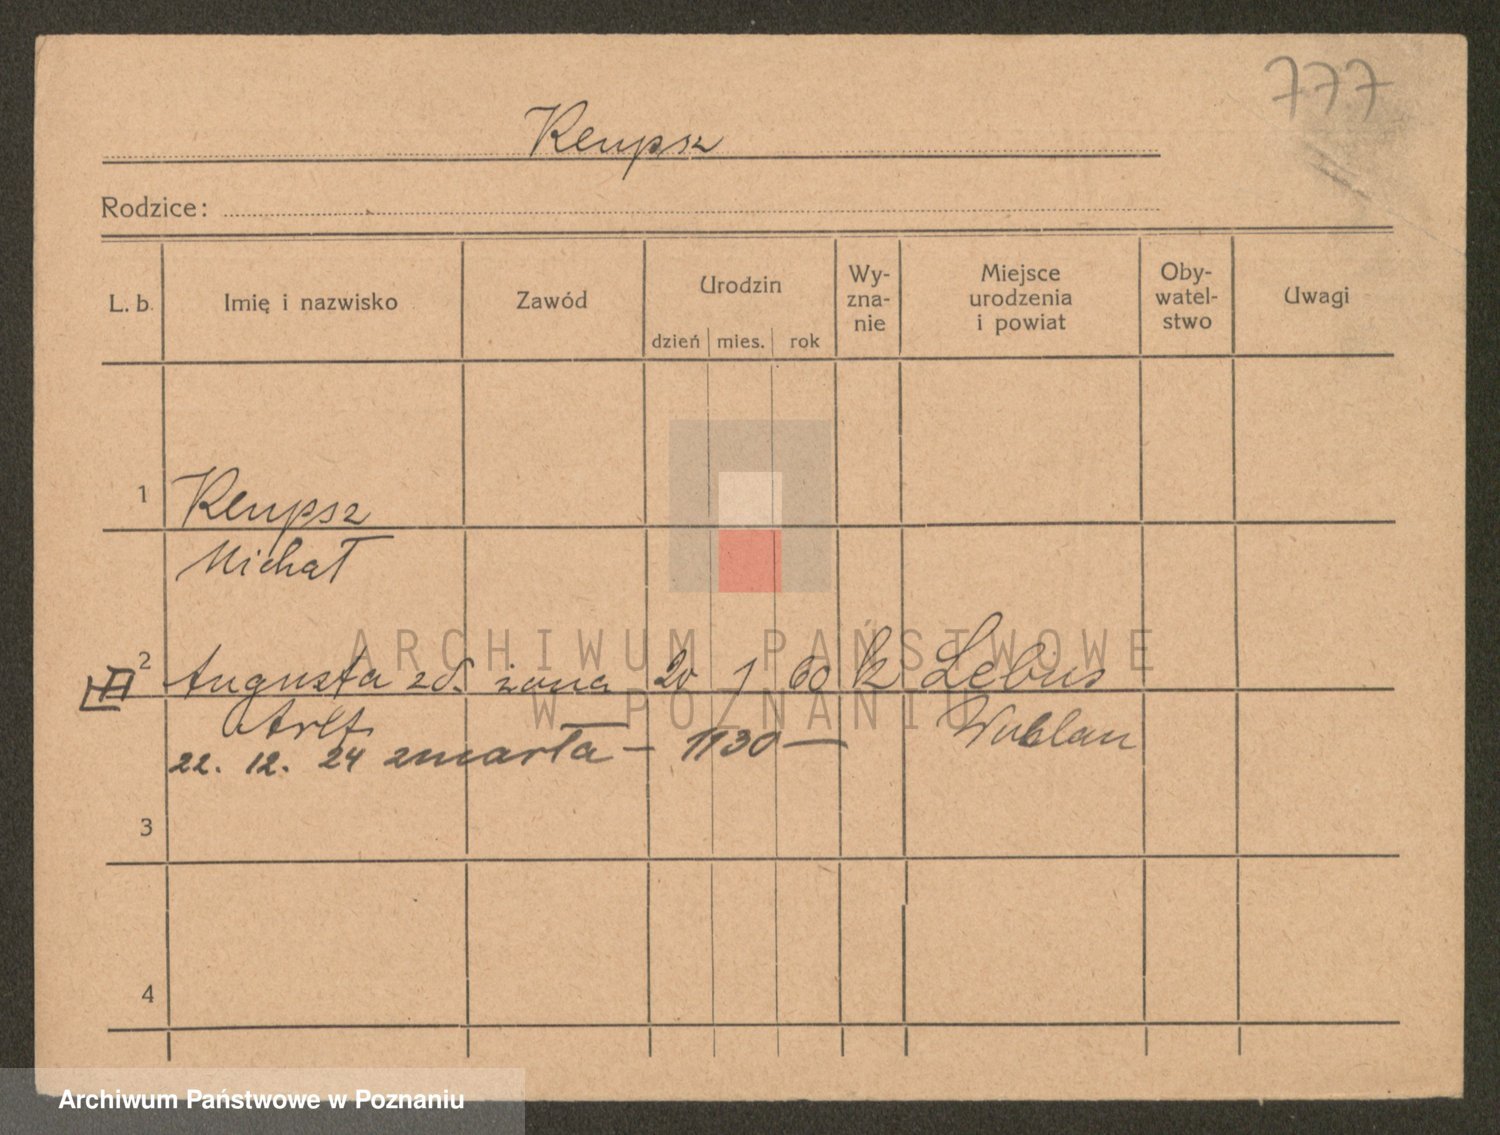 777
Kempsz
Rodzice:
L. b. Imię i nazwisko Zawód Urodzin dzień mies. rok Wy- zna- nie Miejsce urodzenia i powiat Oby- watel- stwo Uwagi
1 Kempsz
Michał
2 Augusta zd. żona 20 1 60 k Lebus
22. 12. 24 zmarła — 1130 —
3
4
ARCHIWUM PAŃSTWOWE
W POZNANIU
Archiwum Państwowe w Poznaniu